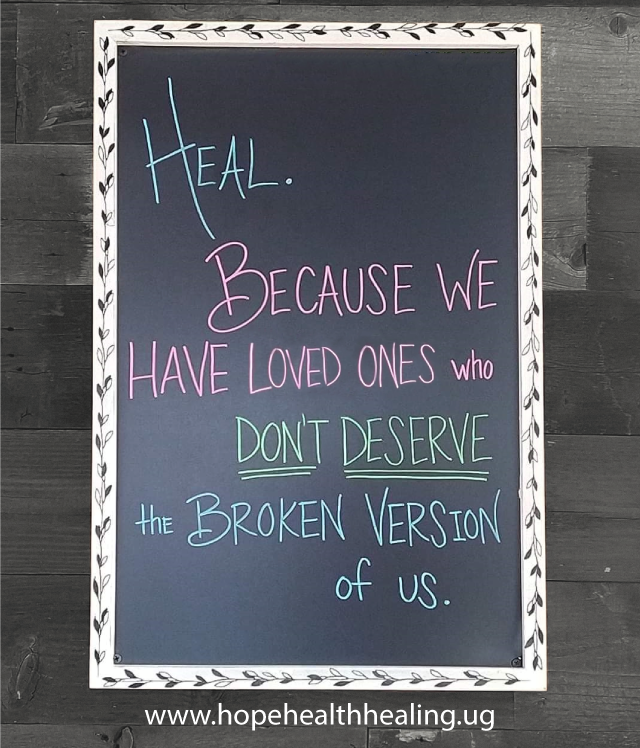 HEAL.
BECAUSE WE
HAVE LOVED ONES who
DON'T DESERVE
the BROKEN VERSION
of us.
www.hopehealthhealing.ug